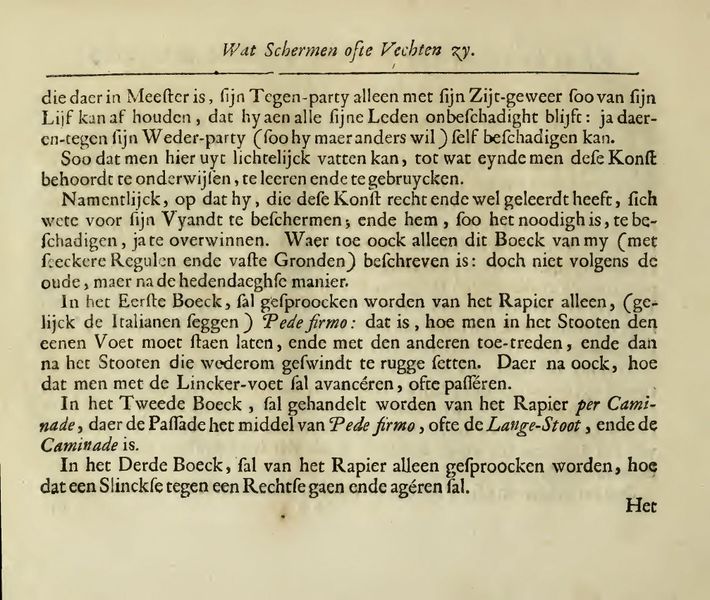 Wat Schermen ofte Vechten zy.
die daer in Meeſter is, ſijn Tegen-party alleen met ſijn Zijt-geweer ſoo van ſijn
Lijf kan af houden, dat hy aen alle ſijne Leden onbeſchadight blijft: ja daer-
en-tegen ſijn Weder-party (ſoo hy maer anders wil) ſelf beſchadigen kan.
Soo dat men hier uyt lichtelijck vatten kan, tot wat eynde men deſe Konſt
behoordt te onderwijſen, te leeren ende te gebruycken.
Namentlijck, op dat hy, die deſe Konſt recht ende wel geleerdt heeft, ſich
wete voor ſijn Vyandt te beſchermen; ende hem, ſoo het noodigh is, te be-
ſchadigen, ja te overwinnen. Waer toe oock alleen dit Boeck van my (met
ſeeckere Regulen ende vaſte Gronden) beſchreven is: doch niet volgens de
oude, maer na de hedendaeghſe manier.
In het Eerſte Boeck, ſal geſproocken worden van het Rapier alleen, (ge-
lijck de Italianen ſeggen) Pede firmo: dat is, hoe men in het Stooten den
eenen Voet moet ſtaen laten, ende met den anderen toe-treden, ende dan
na het Stooten die wederom geſwindt te rugge ſetten. Daer na oock, hoe
dat men met de Lincker-voet ſal avancéren, ofte paſſéren.
In het Tweede Boeck, ſal gehandelt worden van het Rapier per Cami-
nade, daer de Paſſade het middel van Pede firmo, ofte de Lange-Stoot, ende de
Caminade is.
In het Derde Boeck, ſal van het Rapier alleen geſproocken worden, hoe
dat een Slinckſe tegen een Rechtſe gaen ende agéren ſal.
Het